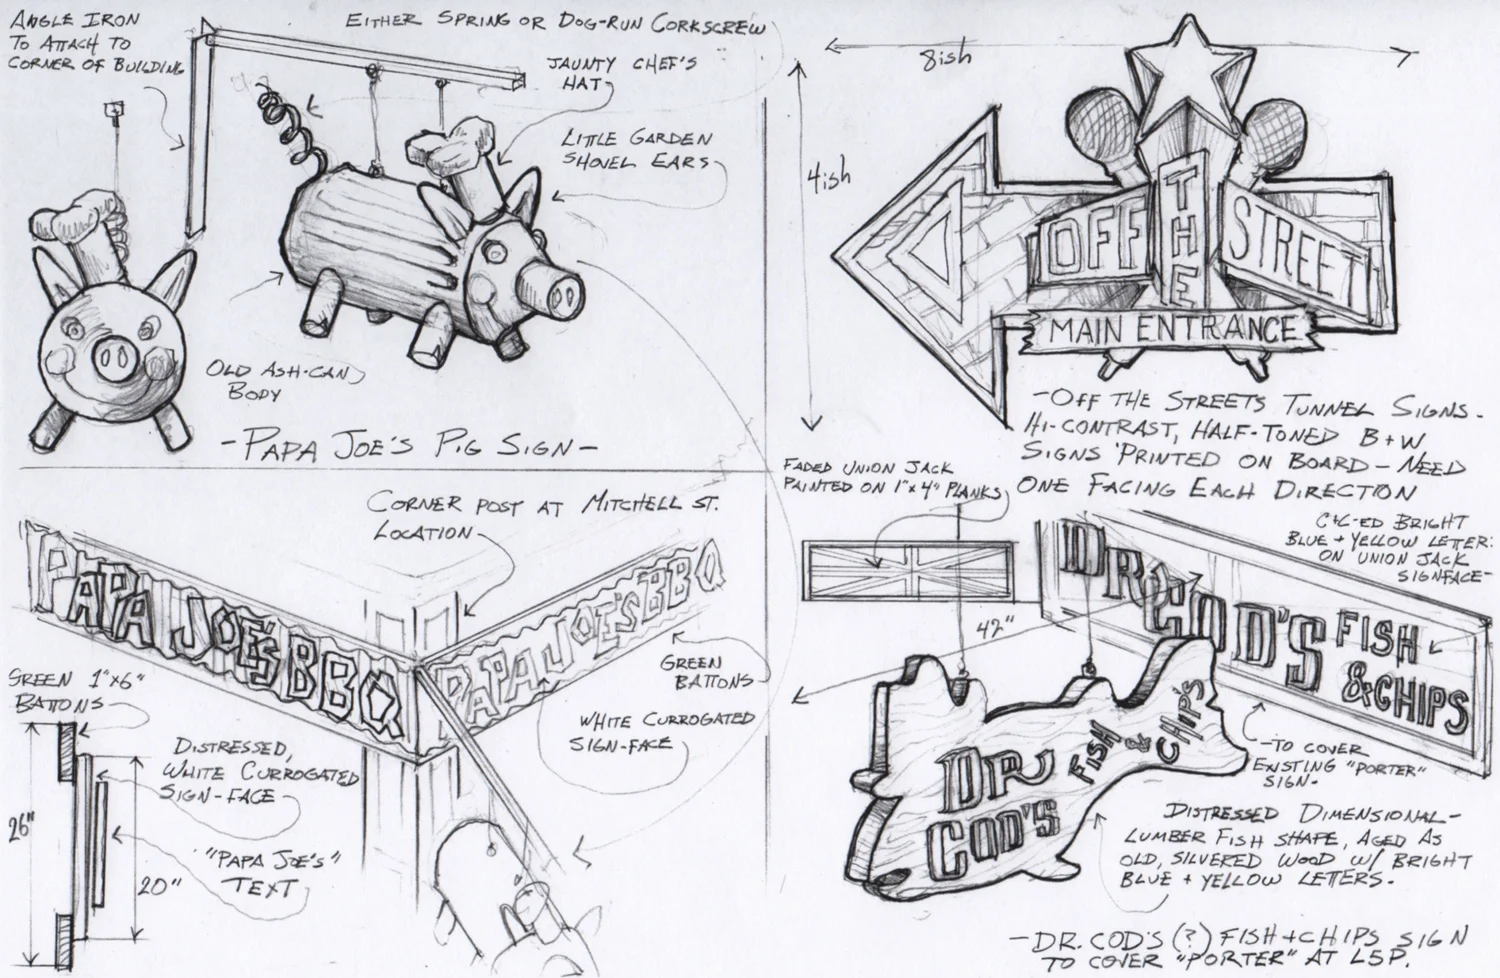 ANGLE IRON
TO ATTACH TO
CORNER OF BUILDING
EITHER SPRING OR DOG-RUN CORKSCREW
JAUNTY CHEF'S
HAT
LITTLE GARDEN
SHOVEL EARS
OLD ASH-CAN
BODY
-PAPA JOE'S PIG SIGN-
8ish
4ish
OFF
THE
STREET
MAIN ENTRANCE
-OFF THE STREETS TUNNEL SIGNS-
HI-CONTRAST, HALF-TONED B+W
SIGNS PRINTED ON BOARD-NEED
ONE FACING EACH DIRECTION
CORNER POST AT MITCHELL ST.
LOCATION
PAPA JOE'S BBQ
PAPA JOE'S BBQ
GREEN
BATTONS
WHITE CURROGATED
SIGN-FACE
GREEN 1"x6"
BATTONS
DISTRESSED,
WHITE CURROGATED
SIGN-FACE
26"
20"
"PAPA JOE'S"
TEXT
FADED UNION JACK
PAINTED ON 1"x4" PLANKS
C+C-ED BRIGHT
BLUE + YELLOW LETTER:
ON UNION JACK
SIGNFACE-
42"
DR COD'S FISH
& CHIPS
DR
COD'S
FISH
&
CHIPS
-TO COVER
EXISTING "PORTER"
SIGN-
DISTRESSED DIMENSIONAL-
LUMBER FISH SHAPE, AGED AS
OLD, SILVERED WOOD W/ BRIGHT
BLUE + YELLOW LETTERS-
-DR. COD'S (?) FISH+CHIPS SIGN
TO COVER "PORTER" AT L5P.